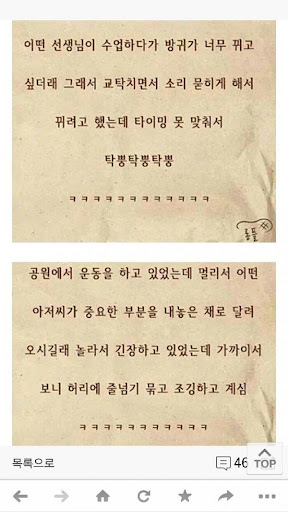 어떤 선생님이 수업하다가 방귀가 너무 뀌고
싶더래 그래서 교탁치면서 소리 묻히게 해서
뀌려고 했는데 타이밍 못 맞춰서
탁뿡탁뿡탁뿡
ㅋㅋㅋㅋㅋㅋㅋㅋㅋㅋㅋㅋㅋ
공원에서 운동을 하고 있었는데 멀리서 어떤
아저씨가 중요한 부분을 내놓은 채로 달려
오시길래 놀라서 긴장하고 있었는데 가까이서
보니 허리에 줄넘기 묶고 조깅하고 계심
ㅋㅋㅋㅋㅋㅋㅋㅋㅋㅋㅋ
목록으로
46
TOP